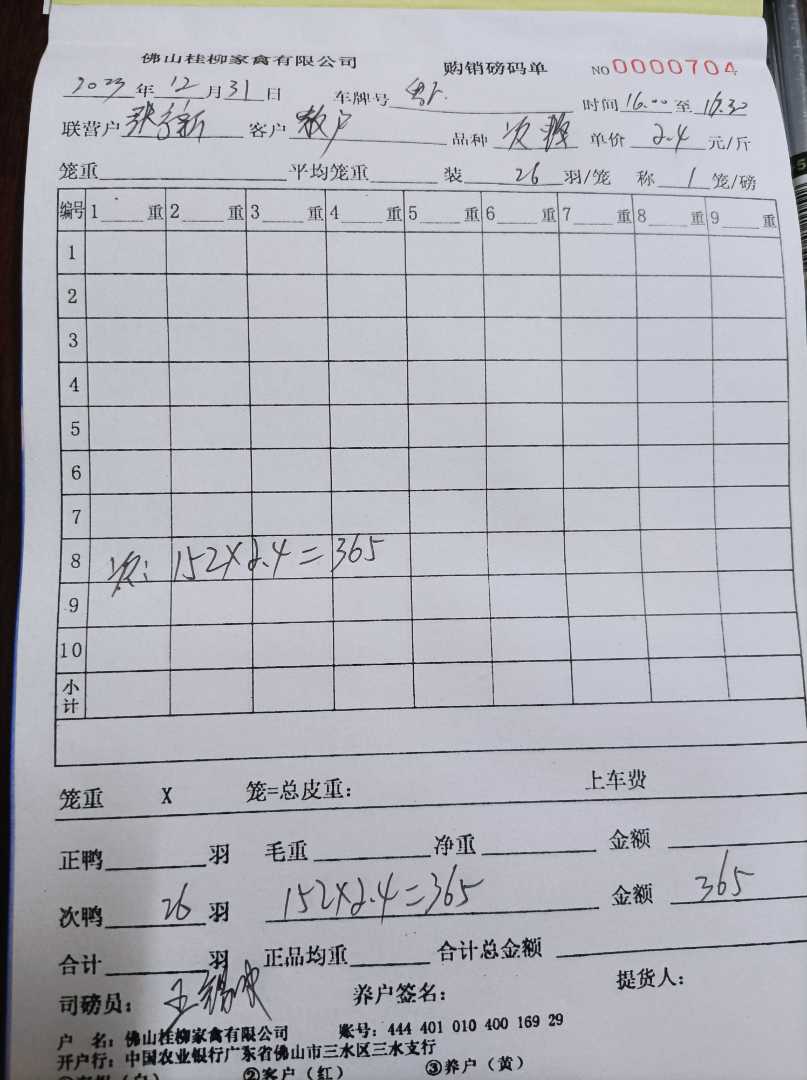 佛山桂柳家禽有限公司 购销磅码单 NO 0000704
2023年12月31日 车牌号 时间 16.00 至 16.30
联营户 客户 散户 品种 次 单价 2.4 元/斤
笼重 平均笼重 装 26 羽/笼 称 1 笼/磅
编号 1 重 2 重 3 重 4 重 5 重 6 重 7 重 8 重 9 重
1
2
3
4
5
6
7
8 次: 152×2.4=365
9
10
小计
笼重 X 笼=总皮重: 上车费
正鸭 羽 毛重 净重 金额
次鸭 26 羽 152×2.4=365 金额 365
合计 羽 正品均重 合计总金额
司磅员: 养户签名: 提货人:
户 名: 佛山桂柳家禽有限公司 账号: 444 401 010 400 169 29
开户行: 中国农业银行广东省佛山市三水区三水支行
②客户(红) ③养户(黄)